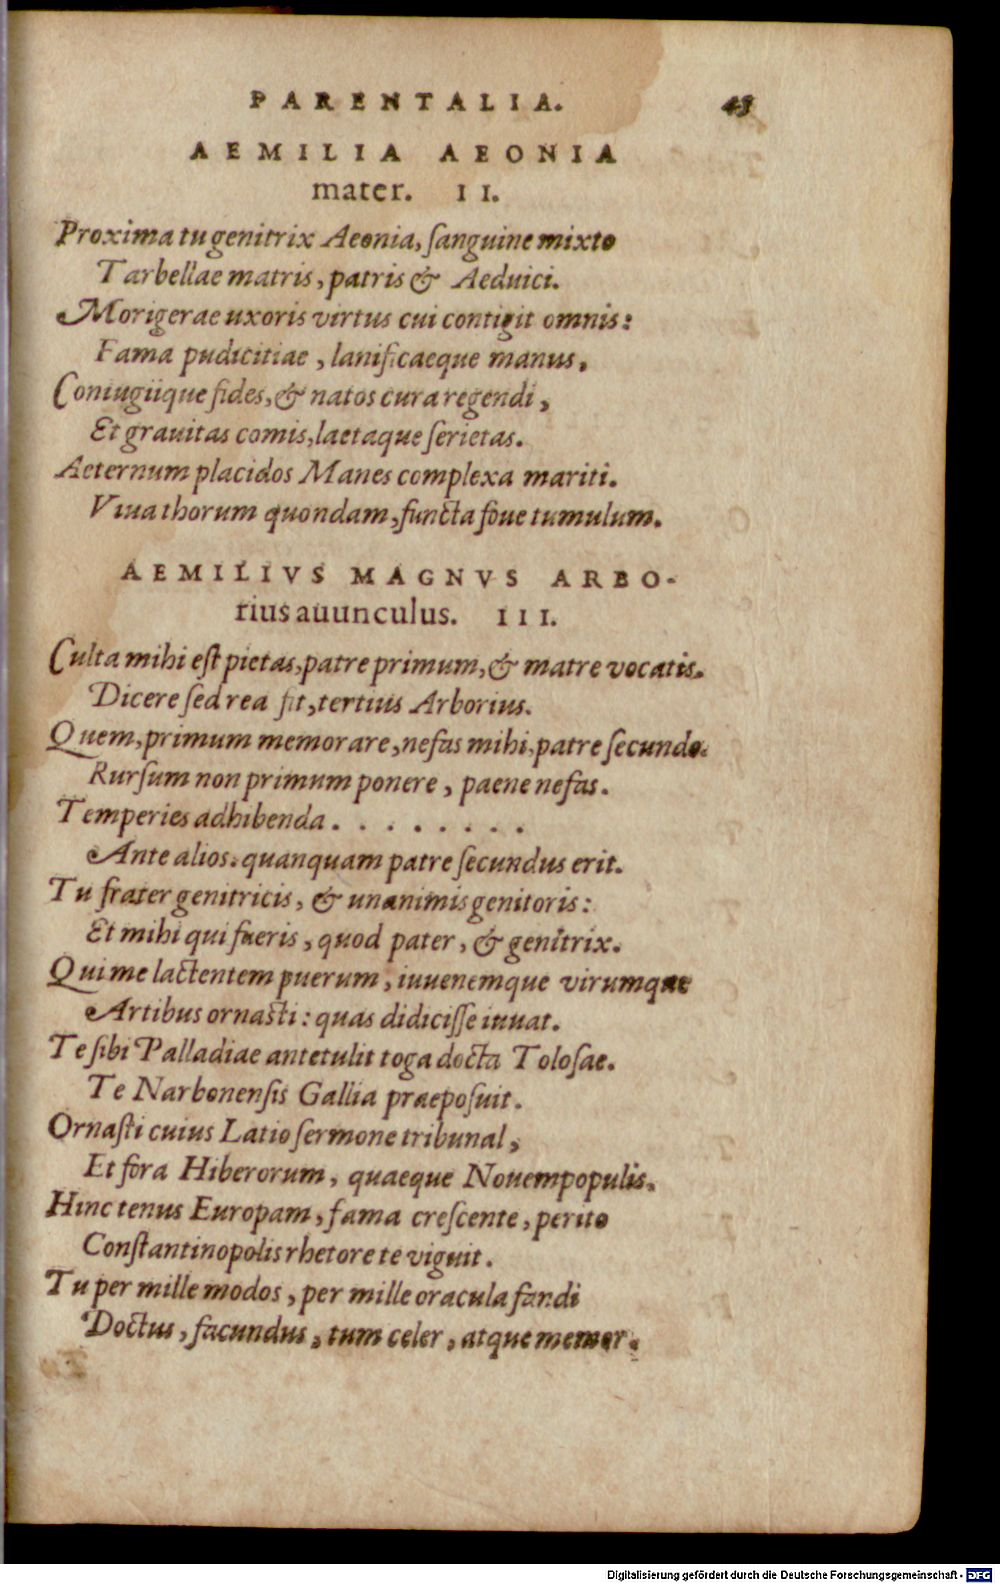 PARENTALIA. 43
AEMILIA AEONIA
mater. II.
Proxima tu genitrix Aeonia, ſanguine mixto
Tarbellae matris, patris & Aeduici.
Morigerae uxoris virtus cui contigit omnis:
Fama pudicitiae, lanificaeque manus,
Coniugiique fides, & natos cura regendi,
Et grauitas comis, laetaque ſerietas.
Aeternum placidos Manes complexa mariti.
Viua thorum quondam, functa foue tumulum.
AEMILIVS MAGNVS ARBO-
rius auunculus. III.
Culta mihi eſt pietas, patre primum, & matre vocatis.
Dicere ſed rea fit, tertius Arborius.
Quem, primum memorare, nefas mihi, patre ſecundo.
Rurſum non primum ponere, paene nefas.
Temperies adhibenda . . . . . . . .
Ante alios. quanquam patre ſecundus erit.
Tu frater genitricis, & unanimis genitoris:
Et mihi qui fueris, quod pater, & genitrix.
Qui me lactentem puerum, iuuenemque virumque
Artibus ornaſti: quas didiciſſe iuuat.
Te ſibi Palladiae antetulit toga docta Toloſae.
Te Narbonenſis Gallia praepoſuit.
Ornaſti cuius Latio ſermone tribunal,
Et fora Hiberorum, quaeque Nouempopulis.
Hinc tenus Europam, fama creſcente, perito
Conſtantinopolis rhetore te viguit.
Tu per mille modos, per mille oracula fandi
Doctus, facundus, tum celer, atque memor.
Digitalisierung gefördert durch die Deutsche Forschungsgemeinschaft - DFG